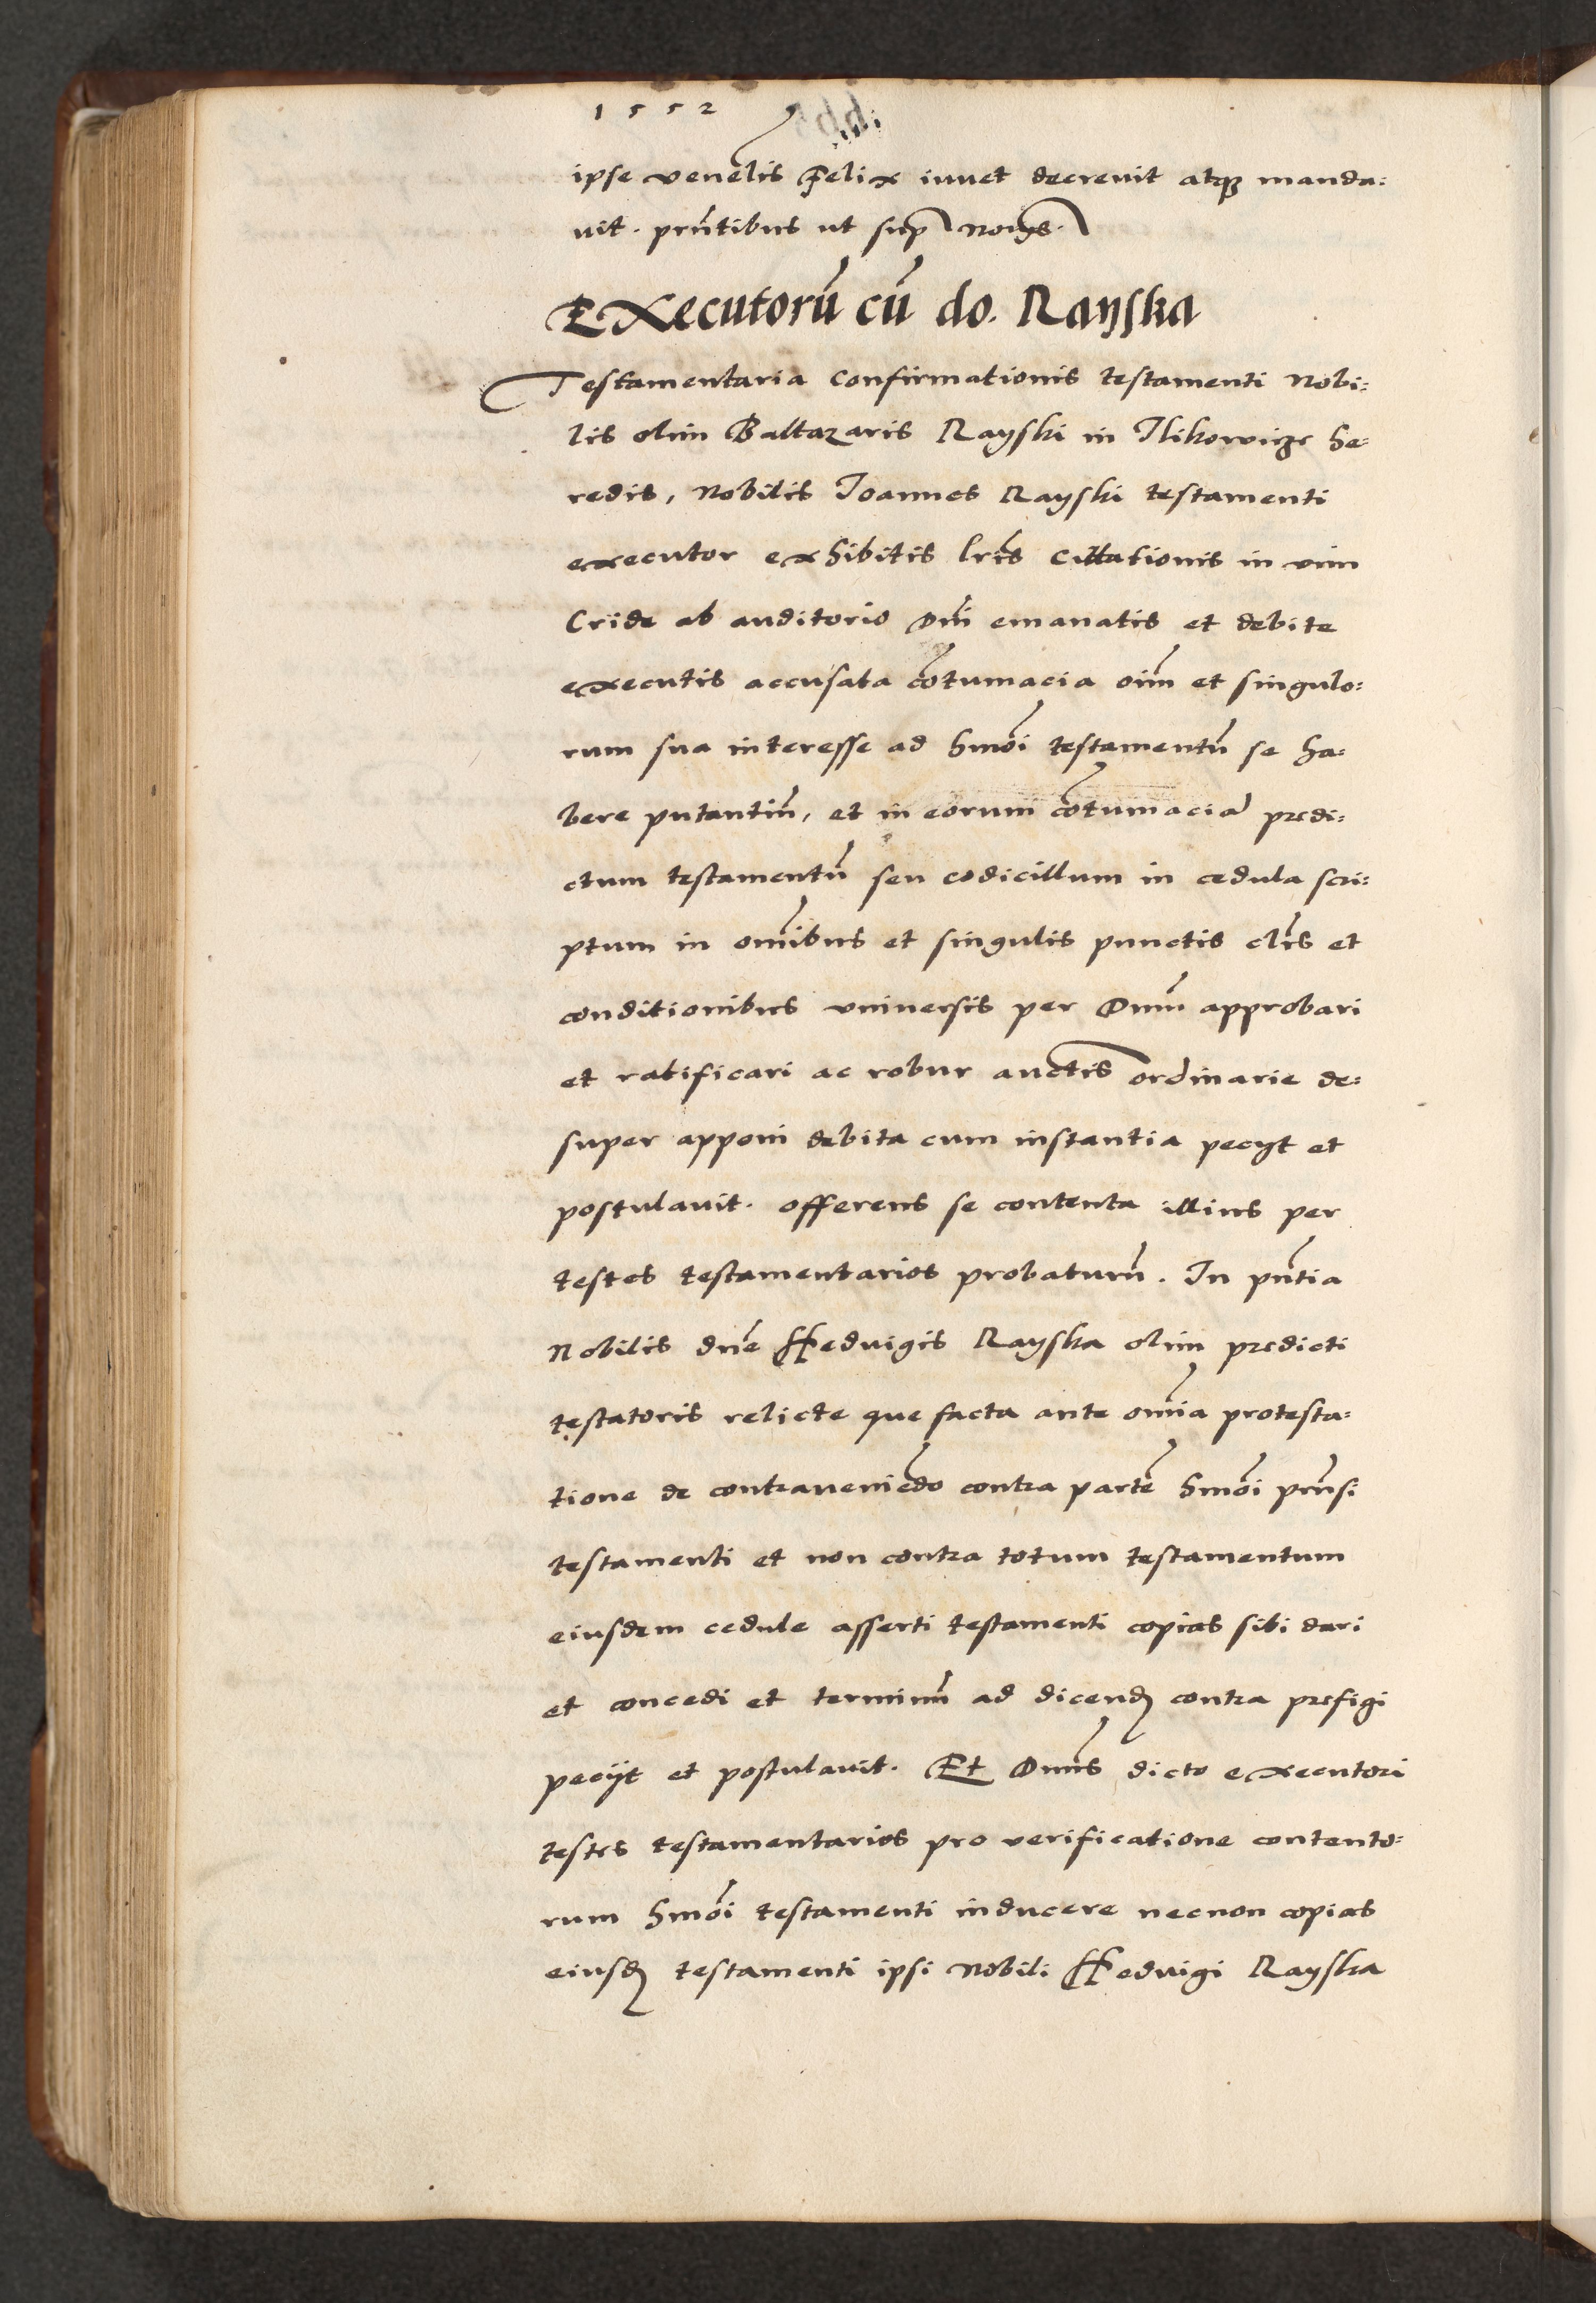 1552
ipse venelis Felix iuvet decrevit atq3 manda:
vit. prñtibus ut sup
EXecutorū cū do. Rayska
Testamentaria confirmationis testamenti Nobi:
lis olim Baltazaris Rayski in Ilikowicze he:
redis, Nobilis Joannes Rayski testamenti
executor exhibitis lris Citationis in vim
Cride ab auditorio Dni emanatis et debite
executis accusata cōtumacia oim̄ et singulo:
rum sua interesse ad hmōi testamentū se ha:
bere putantiū, et in eorum cōtumaciā predi:
ctum testamentū seu codicillum in cedula scri:
ptum in om̄ibus et singulis punctis clīs et
conditionibus universis per Dnm̄ approbari
et ratificari ac robur auctis ordinarie de:
super apponi debita cum instantia pecyt et
postulavit. offerens se contenta illius per
testes testamentarios probaturū. In pñtia
Nobilis dñe Hedvigis Rayska olim predicti
testatoris relicte que facta ante om̄ia protesta:
tione de contraveniēdo contra partē hmōi prñsi
testamenti et non contra totum testamentum
eiusdem cedule asserti testamenti copias sibi dari
et concedi et terminū ad dicend contra prefigi
peciit et postulavit. Et Dnūs dicto executori
testes testamentarios pro verificatione contento:
rum hmōi testamenti inducere necnon copias
eiusd testamenti ipsi Nobili Hedvigi Rayska